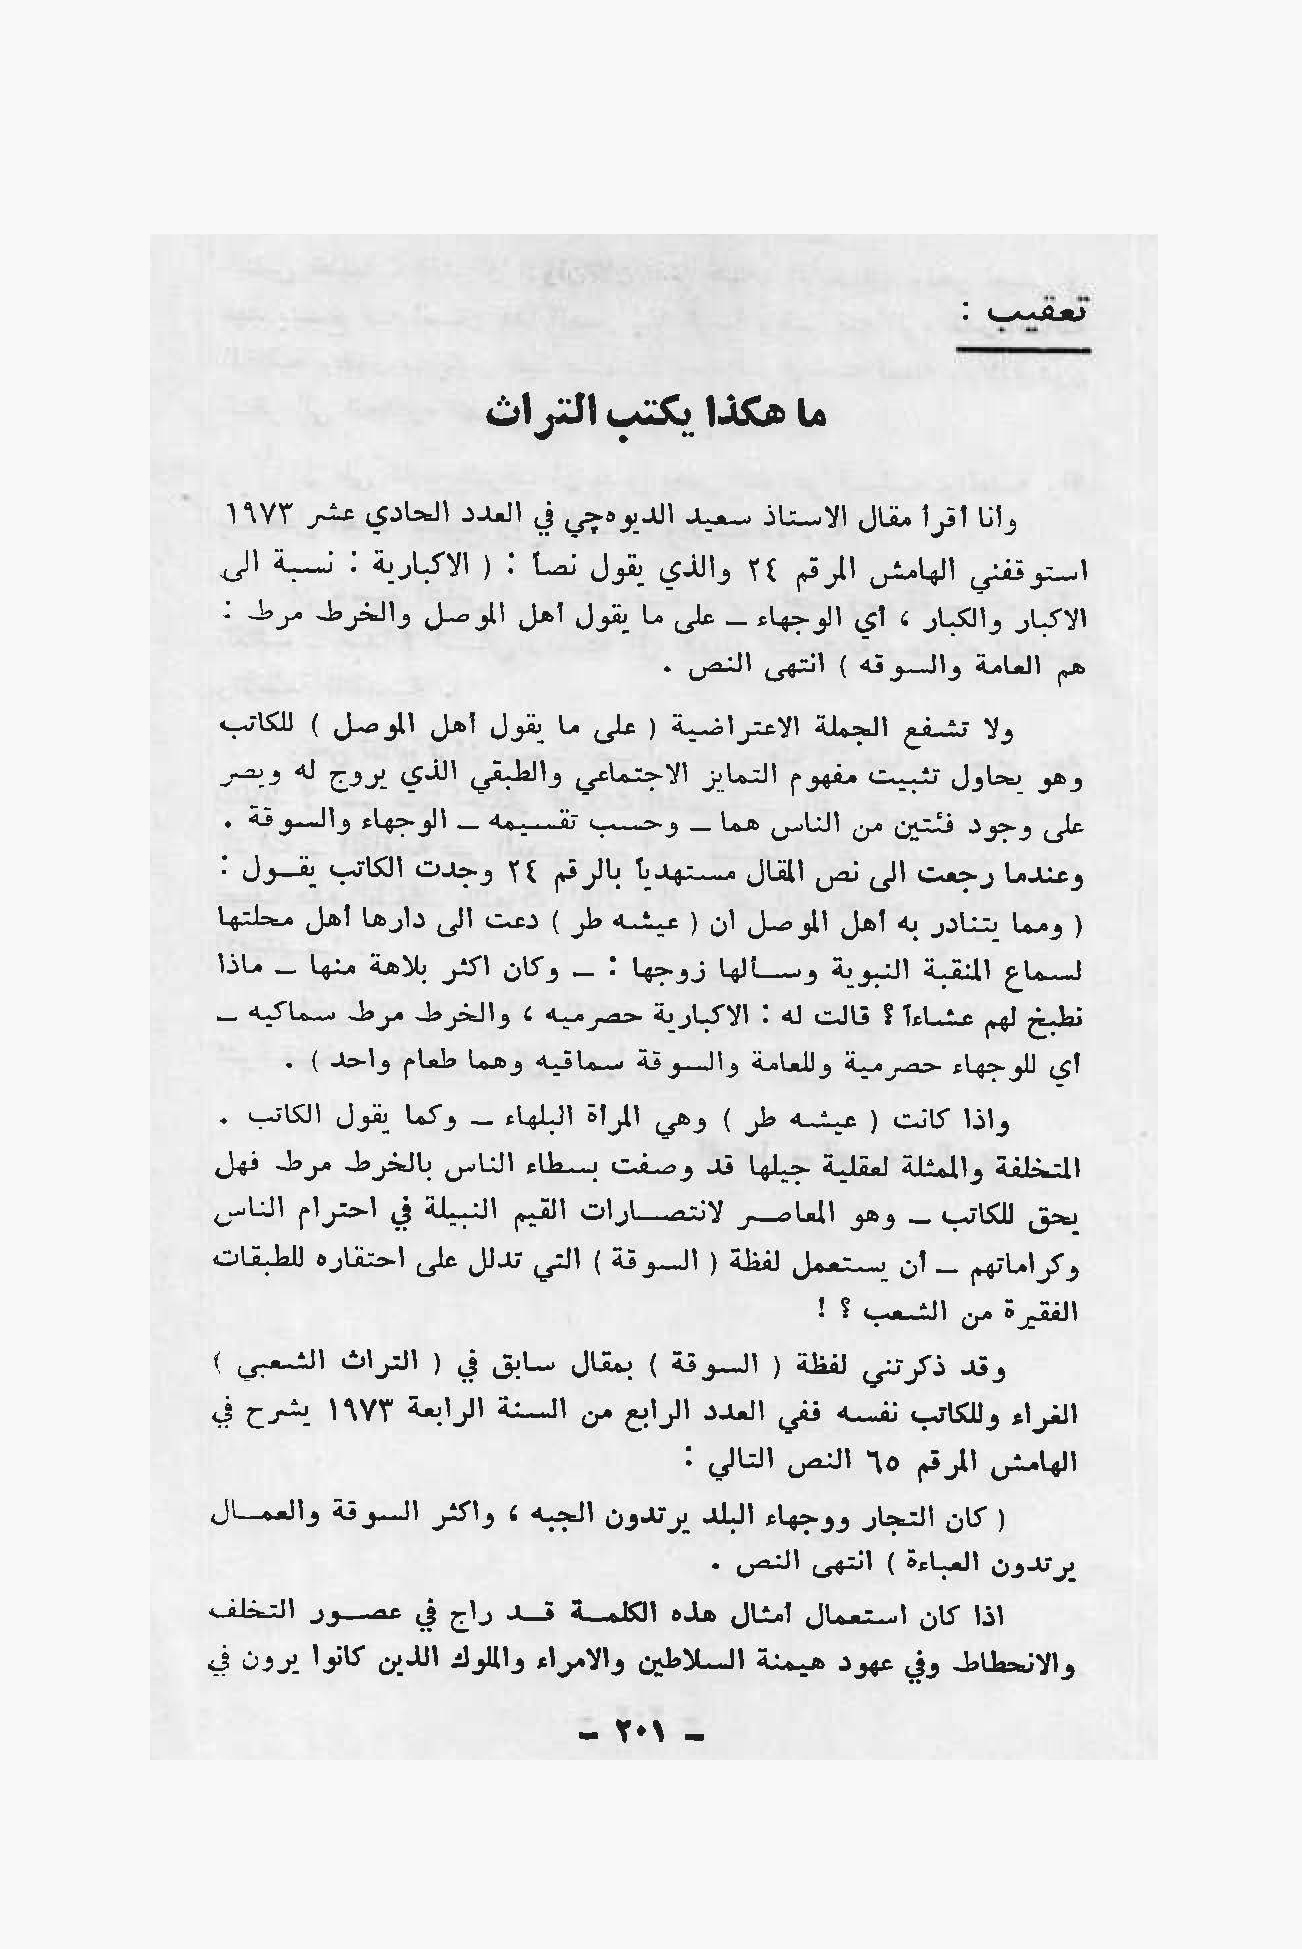 تعقيب :
ما هكذا يكتب التراث
وأنا أقرأ مقال الاستاذ سعيد الديوهچي في العدد الحادي عشر ١٩٧٣
استوقفني الهامش المرقم ٢٤ والذي يقول نصاً : ( الاكبارية : نسبة الى
الاكبار والكبار ، أي الوجهاء ــ على ما يقول أهل الموصل والخرط مرط :
هم العامة والسوقه ) انتهى النص .
ولا تشفع الجملة الاعتراضية ( على ما يقول أهل الموصل ) للكاتب
وهو يحاول تثبيت مفهوم التمايز الاجتماعي والطبقي الذي يروج له ويصر
على وجود فئتين من الناس هما ــ وحسب تقسيمه ــ الوجهاء والسوقة .
وعندما رجعت الى نص المقال مستهدياً بالرقم ٢٤ وجدت الكاتب يقول :
( ومما يتنادر به أهل الموصل ان ( عيشه طر ) دعت الى دارها أهل محلتها
لسماع المنقبة النبوية وسألها زوجها : ــ وكان اكثر بلاهة منها ــ ماذا
نطبخ لهم عشاءاً ؟ قالت له : الاكبارية حصرميه ، والخرط مرط سماكيه ــ
أي للوجهاء حصرمية وللعامة والسوقة سماقيه وهما طعام واحد ) .
واذا كانت ( عيشه طر ) وهي المرأة البلهاء ــ وكما يقول الكاتب .
المتخلفة والممثلة لعقلية جيلها قد وصفت بسطاء الناس بالخرط مرط فهل
يحق للكاتب ــ وهو المعاصر لانتصارات القيم النبيلة في احترام الناس
وكراماتهم ــ أن يستعمل لفظة ( السوقة ) التي تدلل على احتقاره للطبقات
الفقيرة من الشعب ؟ !
وقد ذكرتني لفظة ( السوقة ) بمقال سابق في ( التراث الشعبي )
الغراء وللكاتب نفسه ففي العدد الرابع من السنة الرابعة ١٩٧٣ يشرح في
الهامش المرقم ٦٥ النص التالي :
( كان التجار ووجهاء البلد يرتدون الجبه ، واكثر السوقة والعمال
يرتدون العباءة ) انتهى النص .
اذا كان استعمال أمثال هذه الكلمة قد راج في عصور التخلف
والانحطاط وفي عهود هيمنة السلاطين والامراء والملوك الذين كانوا يرون في
ــ ٢٠١ ــ